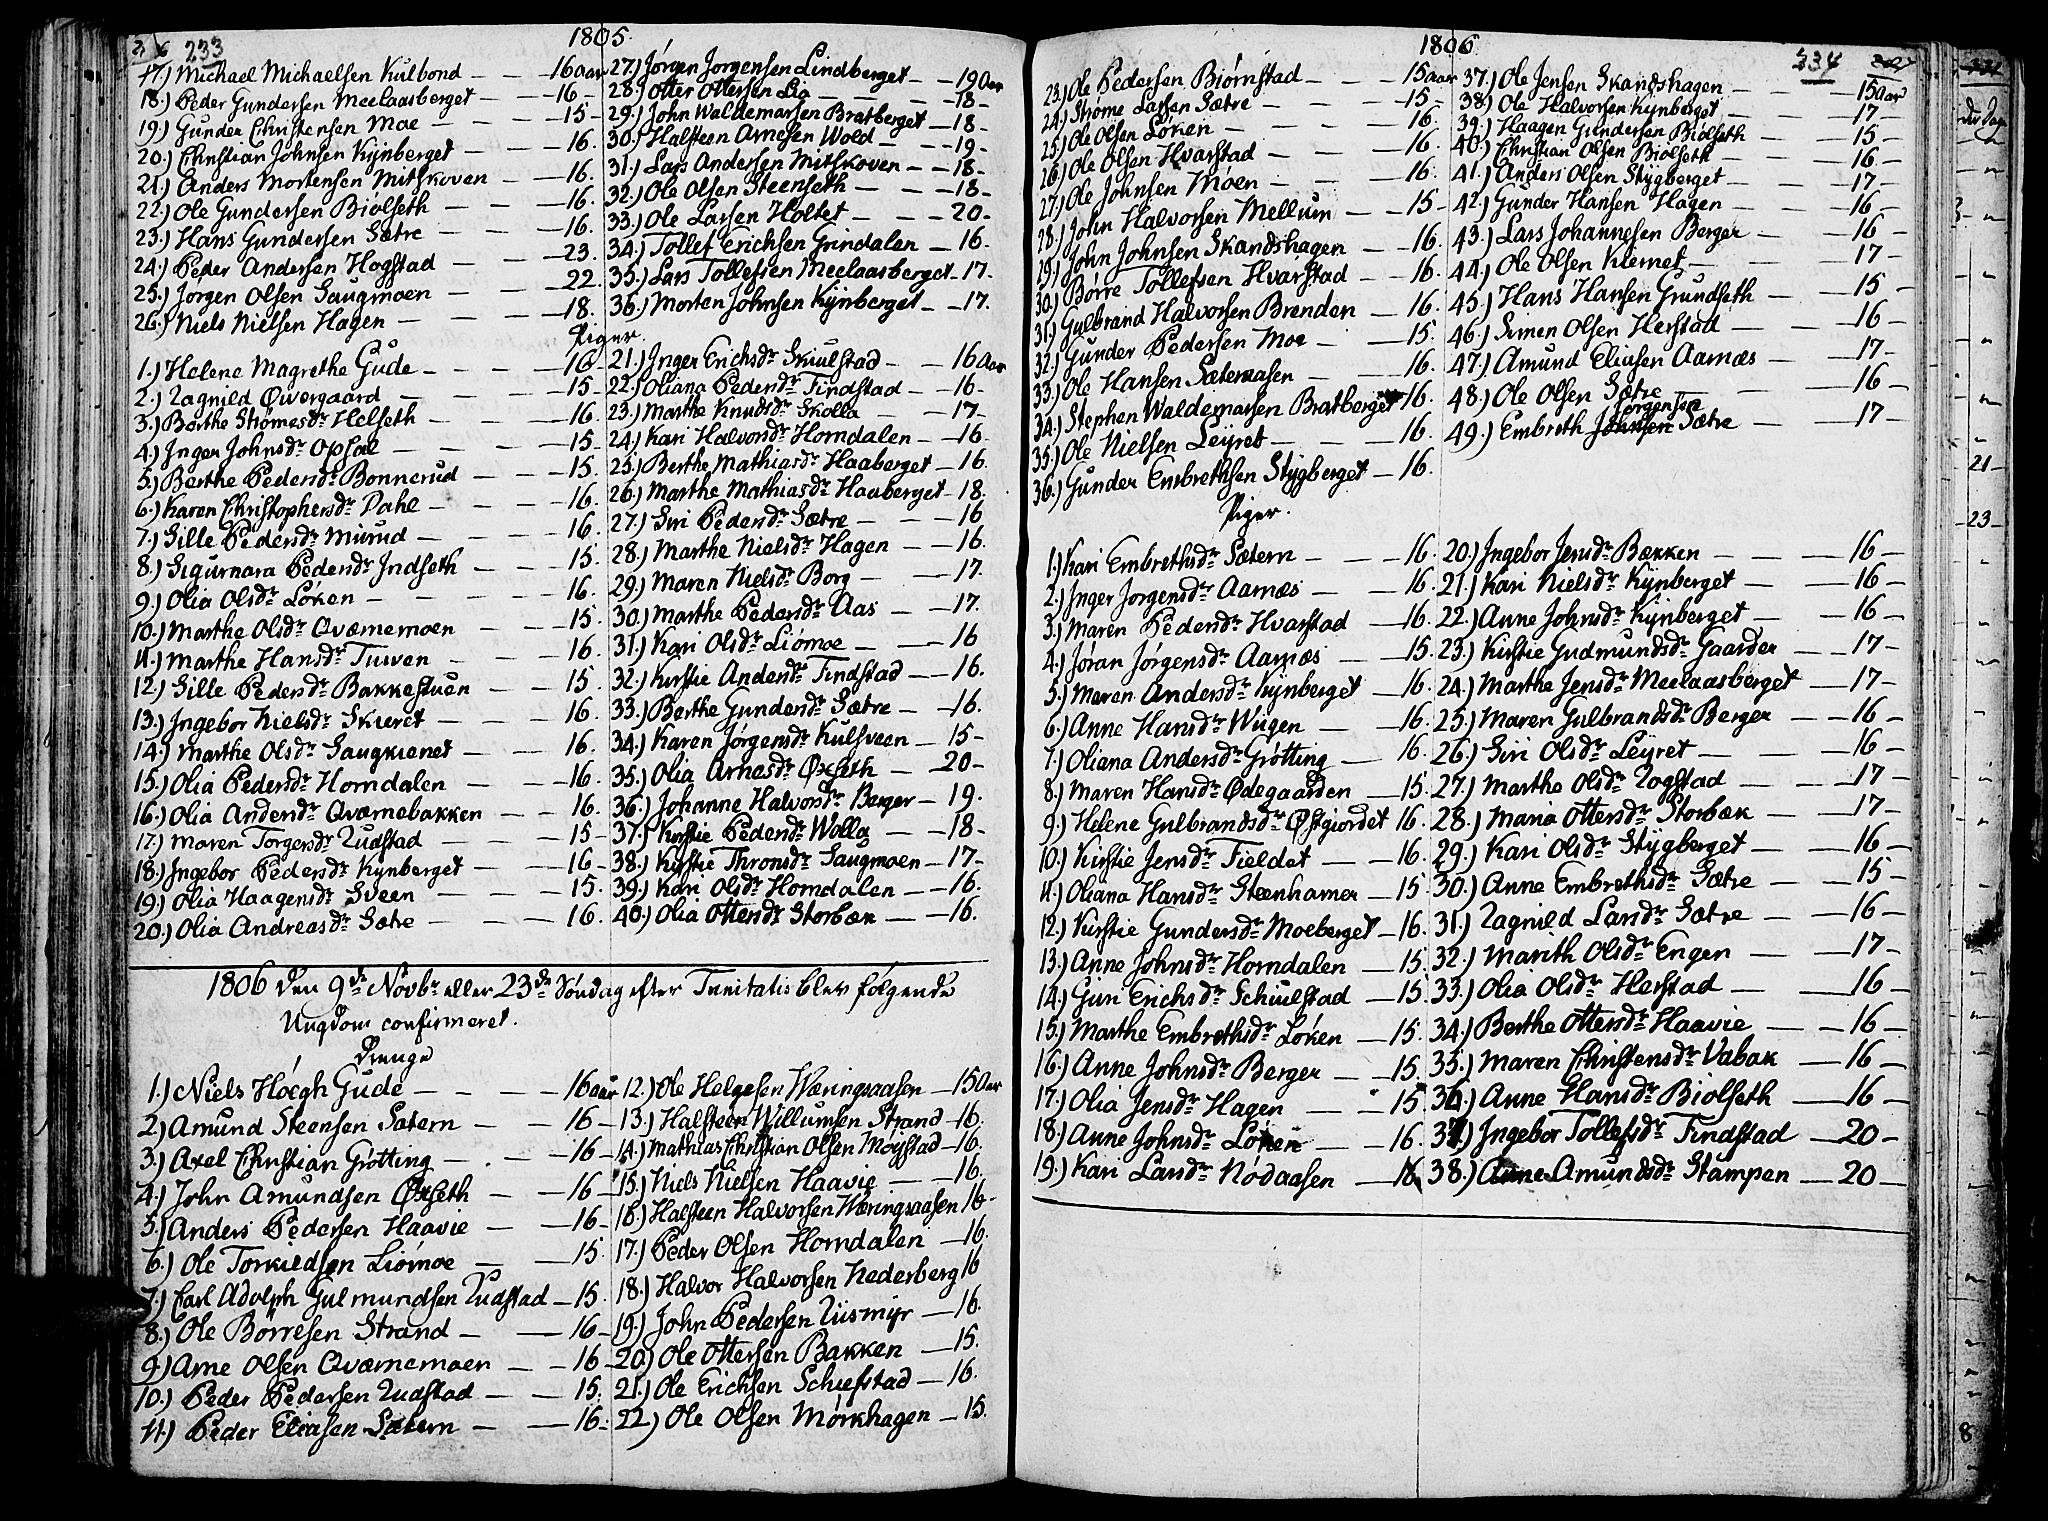 233
1805.
17.) Michael Michaelsen Kulbond — — 16 aar
18.) Peder Gundersen Meelaasberget — — 16 –
19.) Gunder Christensen Moe — — 15 –
20.) Christian Johnsen Kynberget — — 16.
21.) Anders Mortensen Mitskoven — 16.
22.) Ole Gundersen Biolseth — — 16.
23.) Hans Gundersen Sætre — — 16.
24.) Peder Andersen Hogstad — — 23.
25.) Jørgen Olsen Saugmoen — — 22.
26.) Niels Nielsen Hagen — — 18.
27.) Jørgen Jorgensen Lindberget — 19 Aar
28.) Otter Ottersen Lia — — 18 –
29.) John Waldemarsen Bratberget — 18 –
30.) Halsteen Arnesen Wold — — 19 –
31.) Lars Andersen Mitskoven — 18 –
32.) Ole Olsen Steenseth — — 18 –
33.) Ole Larsen Holtet — — 20 –
34.) Tollef Erichsen Grindalen — 16.
35.) Lars Tollefsen Meelaasberget – 17.
36.) Morten Johnsen Kynberget — 17.
Piger.
1.) Helene Magrethe Gude — — 16 –
2.) Ragnild Øwergaard — — 15 –
3.) Berthe Strømesdr Helseth — — 16.
4.) Inger Johnsdr Opsal — — 15.
5.) Berthe Pedersdr Bonnerud — — 15.
6.) Karen Christophersdr Dahl — — 16.
7.) Sille Pedersdr Murud — — 16.
8.) Sigurnara Pedersdr Indseth — — 15.
9.) Olia Olsdr Løken — — 16.
10.) Marthe Olsdr Qværnemoen — 15.
11.) Marthe Hansdr Tuven — — 16.
12.) Sille Pedersdr Bakkestuen — — 15.
13.) Ingebor Nielsdr Skieret — — 16.
14.) Marthe Olsdr Saugkienet — — 16.
15.) Olia Pedersdr Horndalen — — 16.
16.) Olia Andersdr Qværnebakken — — 16.
17.) Maren Torgersdr Rudstad — — 15 –
18.) Ingebor Pedersdr Kynberget — — 16 –
19.) Olia Haagensdr Sveen — — 15.
20.) Olia Andreasdr Sætre — — 16.
21.) Inger Erichsdr Skiulstad — — 16 Aar
22.) Oliana Pedersdr Findstad — 16 –
23.) Marthe Knudsdr Skolla — — 17 –
24.) Kari Halvorsdr Horndalen — 16 –
25.) Berthe Mathiasdr Haaberget — 16.
26.) Marthe Mathiasdr Haaberget — 18.
27.) Siri Pedersdr Sætre — — 16
28.) Marthe Nielsdr Hagen — — 16.
29.) Maren Nielsdr Borg — — 17.
30.) Marthe Pedersdr Aas — — 17.
31.) Kari Olsdr Liømoe — — 16
32.) Kirstie Andersdr Findstad — — 16.
33.) Berthe Gundersdr Sætre — — 16.
34.) Karen Jorgensdr Kulsveen — 15 –
35.) Olia Arnesdr Øxseth — 20 –
36.) Johanne Halvorsdr Berger — 19.
37.) Kirstie Pedersdr Wolla — — 18 –
38.) Kirstie Thronsdr Saugmoen — 17 –
39.) Kari Olsdr Horndalen — — 16.
40.) Olia Ottersdr Storbæk — — 16.
1806 den 9de Novbr eller 23de Søndag efter Trinitatis blev følgende
Ungdom confirmeret.
Drenge
1.) Niels Höegh Gude — — 16 aar
2.) Amund Steensen Satern — — 16 –
3.) Axel Christian Grötting — — 16 –
4.) John Amundsen Øxseth — — 16 –
5.) Anders Pedersen Haavie — — 16 –
6.) Ole Torkildsen Liömoe — — 15.
7.) Carl Adolph Gulmundsen Rudstad — 15.
8.) Ole Börresen Strand — — 16 –
9.) Arne Olsen Qværnemoen — — 16 –
10.) Peder Pedersen Rudstad — — 15.
11.) Peder Eliasen Sætern — — 16.
12.) Ole Helgesen Wæringsaasen — 15 Aar
13.) Halsteen Willumsen Strand — 16.
14.) Mathias Christian Olsen Möystad — 16.
15.) Niels Nielsen Haavie — — 16.
16.) Halsteen Halvorsen Wæringsaasen 16 –
17.) Peder Olsen Horndalen — 16.
18.) Halvor Halvorsen Nederberg 16
19.) John Pedersen Riismyr — 16.
20.) Ole Ottersen Bakken — 15.
21.) Ole Erichsen Schiefstad — 16.
22.) Ole Olsen Mörkhagen — 15.
1806
234
23.) Ole Pedersen Biørnstad — — 15 aar
24.) Strøme Larsen Sætre — — 15 –
25.) Ole Olsen Løken — — 16.
26.) Ole Olsen Hvarstad — — 16.
27.) Ole Johnsen Møen — — 16.
28.) John Halvorsen Mellum — — 15 –
29.) John Johnsen Skandshagen — 16.
30.) Børre Tollefsen Hvarstad — 16.
31.) Gulbrand Halvorsen Brenden — 16.
32.) Gunder Pedersen Moe — — 15.
33.) Ole Hansen Sæteraasen — — 16.
34.) Stephen Waldemarsen Bratberget 16.
35.) Ole Nielsen Leyret — — 16.
36.) Gunder Embrethsen Stygberget — 16.
37.) Ole Jensen Skandshagen — — 15 Aar
38.) Ole Halvorsen Kynberget — — 17 –
39.) Haagen Gundersen Biölseth — 15
40.) Christian Olsen Biölseth — — 16 –
41.) Anders Olsen Stygberget — — 17 –
42.) Gunder Hansen Hagen — — 16 –
43.) Lars Johannesen Berger — — 16 –
44.) Ole Olsen Kiernet — — 17 –
45.) Hans Hansen Grundseth — — 15 –
46.) Simen Olsen Herstad — — 16 –
47.) Amund Eliasen Aarnæs — — 17 –
48.) Ole Olsen Sætre — — 16 –
Jörgensen
49.) Embreth Johnsen Sætre — — 17 –
Piger.
1.) Kari Embrethsdr Sætern — — 16.
2.) Inger Jorgensdr Aarnæs — — 16
3.) Maren Pedersdr Hvarstad — 16.
4.) Jøran Jørgensdr Aarnæs — — 15.
5.) Maren Andersdr Kynberget — 16.
6.) Anne Hansdr Wugen — — 16.
7.) Oliana Andersdr Grøtting — 16.
8.) Maren Hansdr Ødegaarden — 15.
9.) Helene Gulbrandsdr Østgiordet 16.
10.) Kirstie Jensdr Fieldet — — 16.
11.) Oliana Hansdr Steenhamer — 15
12.) Kirstie Gundersdr Moeberget — 16.
13.) Anne Johnsdr Horndalen — 15.
14.) Guri Erichsdr Schiulstad — 15.
15.) Marthe Embrethsdr Löken — 15.
16.) Anne Johnsdr Berger — — 15.
17.) Olia Jensdr Hagen — — 15
18.) Anne Johnsdr Löken — — 16.
19.) Kari Larsdr Nödaasen — 16.
20.) Ingebor Jensdr Bækken — — 16 –
21.) Kari Nielsdr Kynberget — — 16 –
22.) Anne Johnsdr Kynberget — — 16 –
23.) Kirstie Gudmundsdr Gaarder — 17 –
24.) Marthe Jensdr Meelaasberget — 17 –
25.) Maren Gulbrandsdr Berger — 16 –
26.) Siri Olsdr Leyret — — 16 –
27.) Marthe Olsdr Rogstad — — 17 –
28.) Maria Ottersdr Storbæk — — 17 –
29.) Kari Olsdr Stygberget — — 16 –
30.) Anne Embrethsdr Sætre — — 15 –
31.) Ragnild Larsdr Sætre — — 16 –
32.) Marith Olsdr Engen — — 17 –
33.) Olia Olsdr Herstad — — 16 –
34.) Berthe Ottersdr Haavie — — 16 –
35.) Maren Christensdr Vabak — 16 –
36.) Anne Hansdr Biölseth — — 16 –
37.) Ingebor Tollefsdr Findstad — 20 –
38.) Anne Amundsdr Stampen — 20 –
21 –
23 –
8